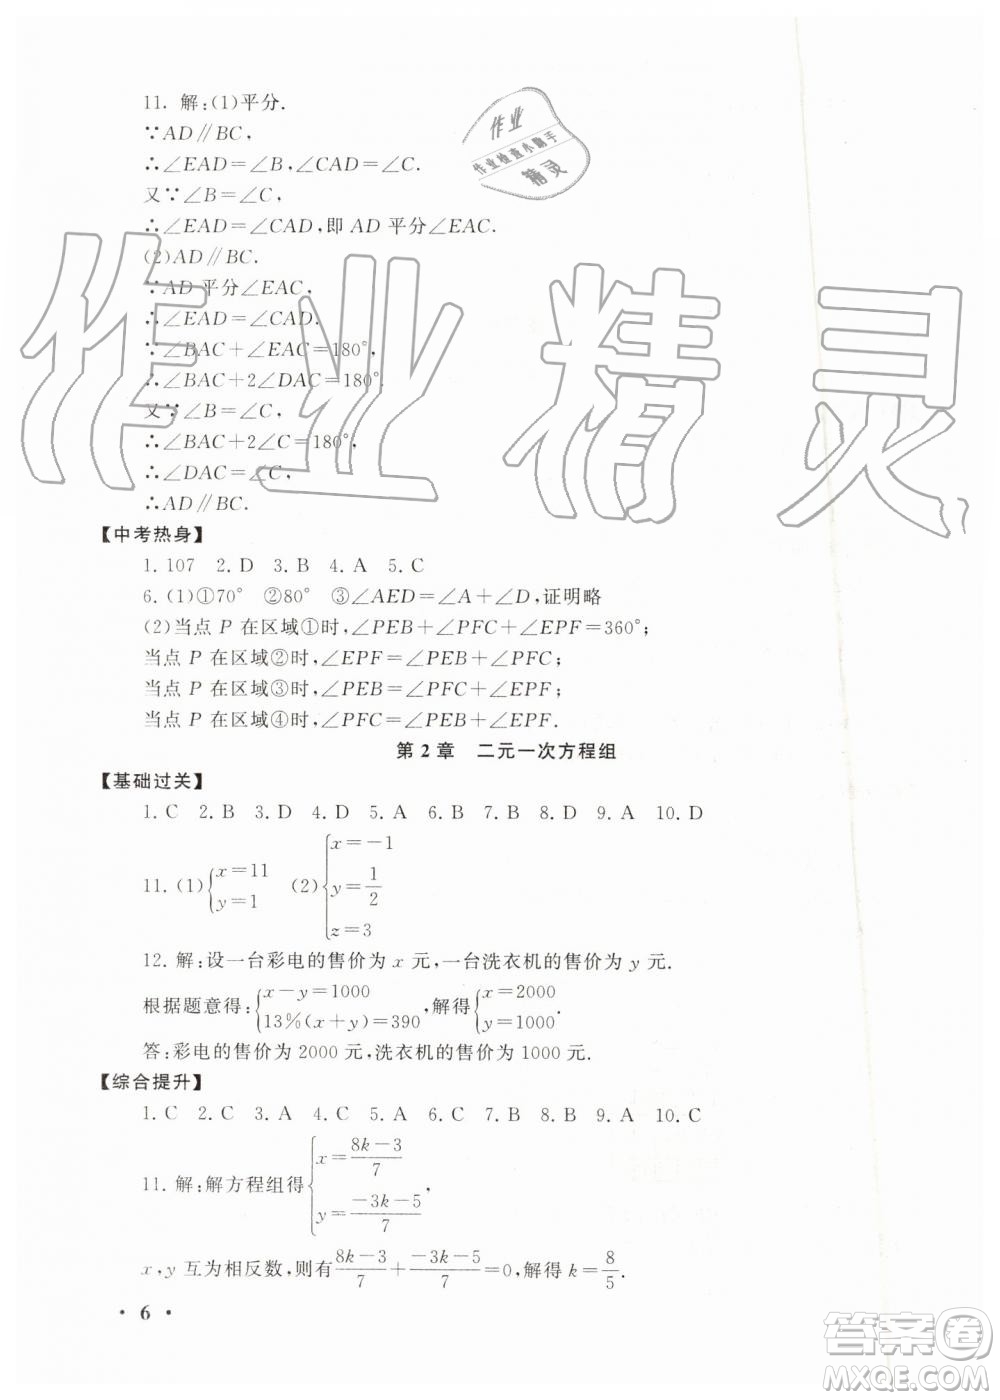 11. 解:(1)平分.
∵AD∥BC,
∴∠EAD=∠B,∠EAD=∠C,
又∵∠B=∠C,
∴∠EAD=∠CAD,即 AD 平分∠EAC.
(2)AD∥BC.
∵AD 平分∠EAC,
∴∠EAD=∠CAD.
∵∠BAC+∠EAC=180°,
∴∠BAC+2∠DAC=180°.
又∵∠B=∠C,
∴∠BAC+2∠C=180°,
∴∠DAC=∠C,
∴AD∥BC.
【中考热身】
1. 107 2. D 3. B 4. A 5. C
6. (1)①70° ②80° ③∠AED=∠A+∠D,证明略
(2)当点 P 在区域①时,∠PEB+∠PFC+∠EPF=360°;
当点 P 在区域②时,∠EPF=∠PEB+∠PFC;
当点 P 在区域③时,∠PEB=∠PFC+∠EPF;
当点 P 在区域④时,∠PFC=∠PEB+∠EPF.
第 2 章 二元一次方程组
【基础过关】
1. C 2. B 3. D 4. D 5. A 6. B 7. D 8. D 9. A 10. D
11. (1){x=11 y=1 (2){x=-1 y=1/2 z=3
12. 解:设一台彩电的售价为 x 元,一台洗衣机的售价为 y 元.
根据题意得:{x-y=1000 13%(x+y)=390,解得{x=2000 y=1000.
答:彩电的售价为 2000 元,洗衣机的售价为 1000 元.
【综合提升】
1. C 2. C 3. A 4. C 5. A 6. C 7. B 8. B 9. A 10. C
11. 解:解方程组得{x=(8k-3)/7 y=(-3k-5)/7,
x,y 互为相反数,则有(8k-3)/7+(-3k-5)/7=0,解得 k=8/5.
· 6 ·
作业
作业检查小助手
精灵
作业精灵
答案圈
MXQE.COM